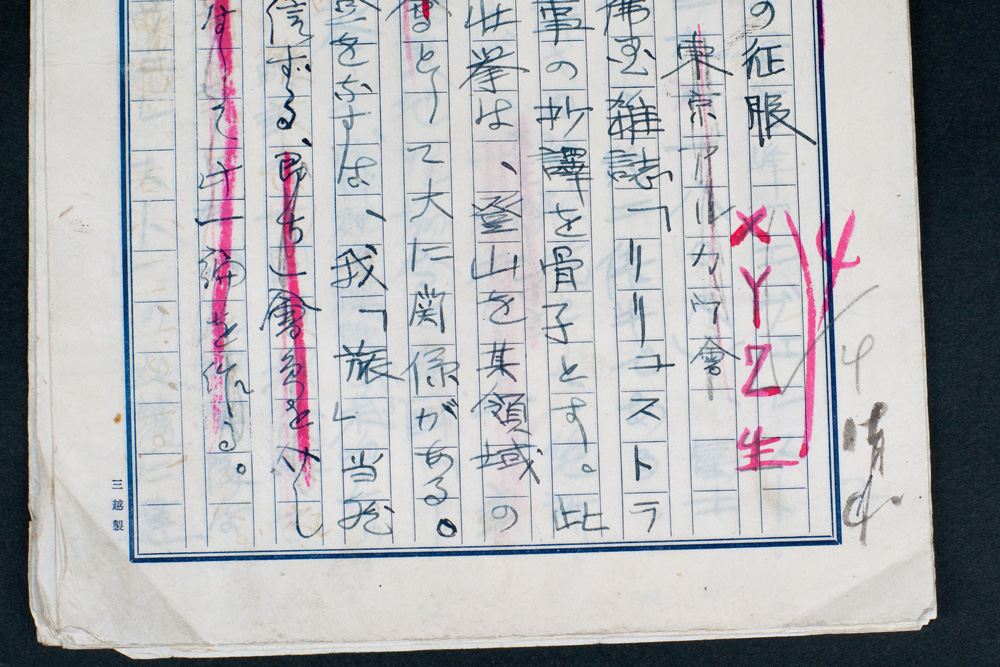 の征服
XYZ生
東京アルカウ會
佛国雑誌「リリユストラ
事の抄譯を骨子とす。此
壮挙は、登山を其領域の
として大に関係がある。
をなすは、我「旅」当然
信ずる、即ち會員と分し
して此一編を作る。
4
4
三越製